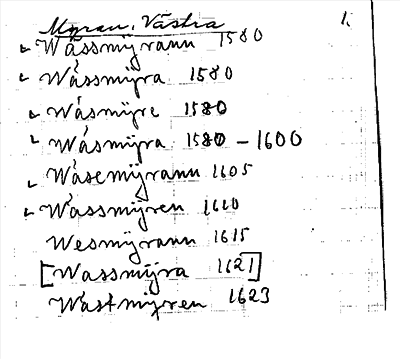 Myran, Västra 1.
Wåssmÿrann 1580
Wåsmÿra 1580
Wåsmÿre 1580
Wåsmÿra 1580 - 1600
Wåsemÿrann 1605
Wåssmÿren 1610
Wesmÿrann 1615
[Wassmÿra 1621]
Wastmÿren 1623